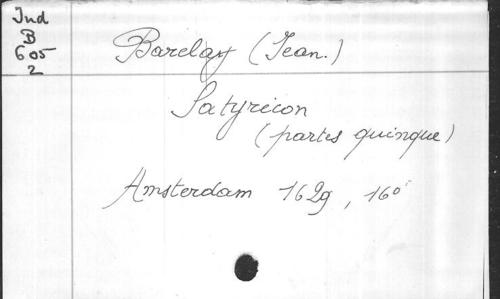 Ind
B
605
2
Barclay (Jean.)
Satyricon
(partes quinque)
Amsterdam 1629, 16°